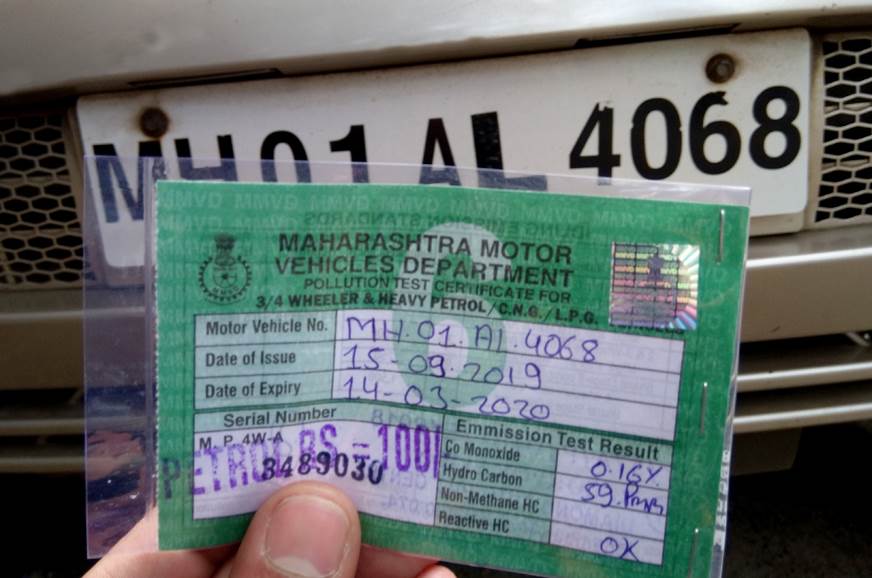 MH01AL 4068
MAHARASHTRA MOTOR
VEHICLES DEPARTMENT
POLLUTION TEST CERTIFICATE FOR
3/4 WHEELER & HEAVY PETROL/C.N.G./L.P.G.
Motor Vehicle No. MH.01.AL.4068
Date of Issue 15-09.2019
Date of Expiry 14-03-2020
Serial Number
M.P.4W-A
PETROL RS-100/
8489030
Emmission Test Result
Co Monoxide 0.16%
Hydro Carbon 59.PPM
Non-Methane HC
Reactive HC OK